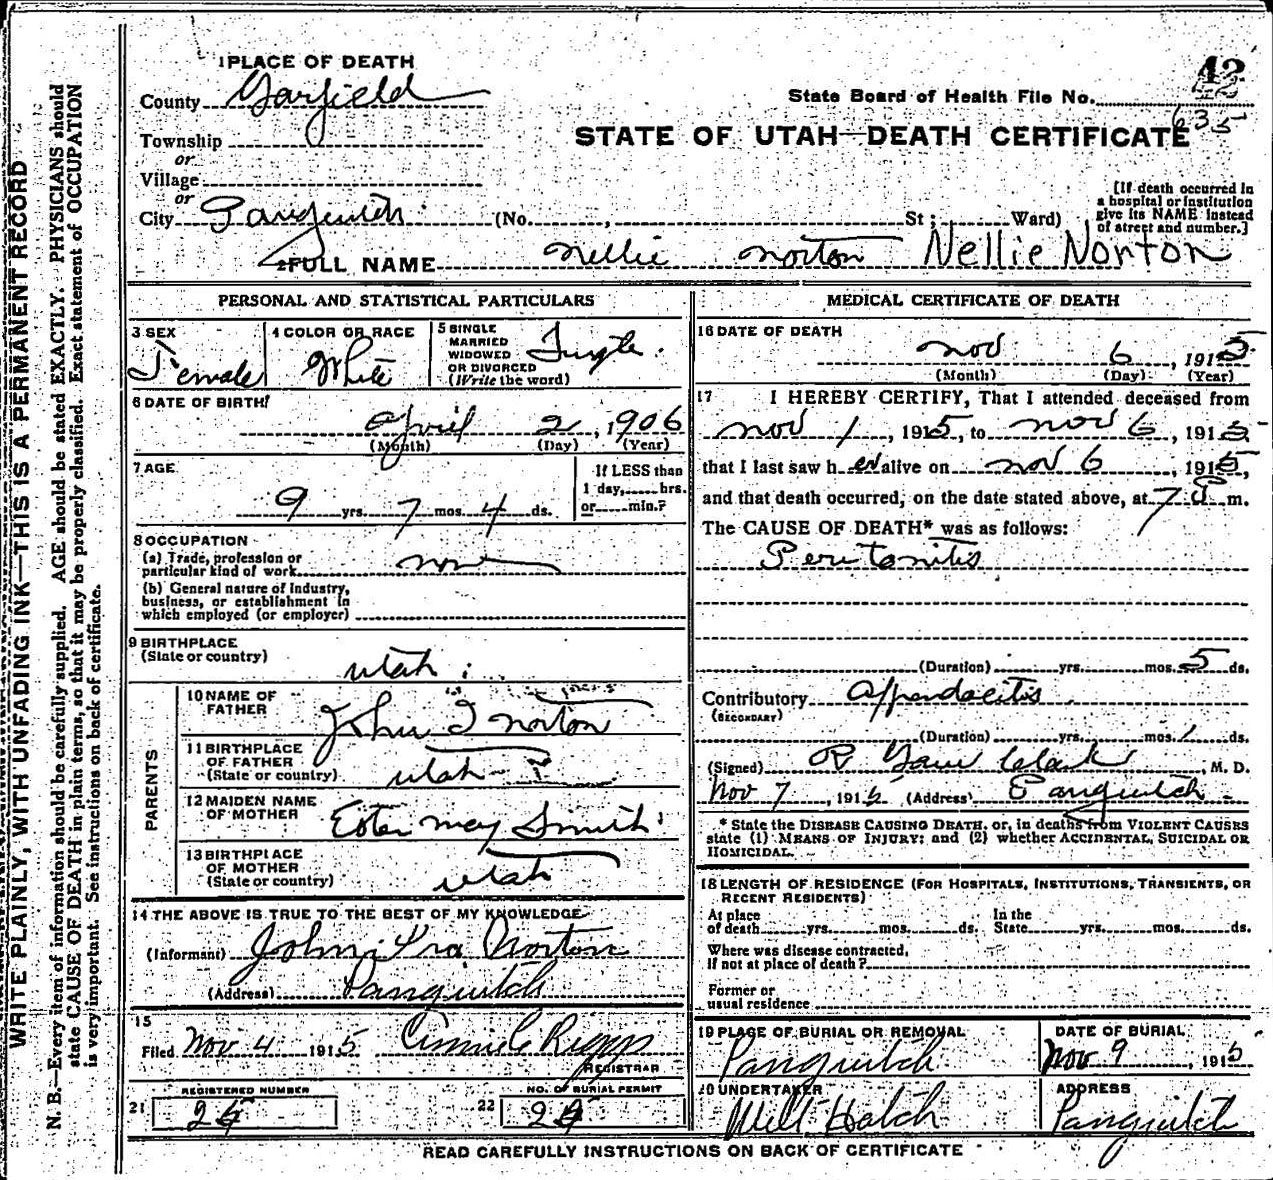 WRITE PLAINLY, WITH UNFADING INK—THIS IS A PERMANENT RECORD
N. B.—Every item of information should be carefully supplied. AGE should be stated EXACTLY. PHYSICIANS should
state CAUSE OF DEATH in plain terms, so that it may be properly classified. Exact statement of OCCUPATION
is very important. See instructions on back of certificate.
1 PLACE OF DEATH
County Garfield
42
State Board of Health File No.
635
Township
STATE OF UTAH—DEATH CERTIFICATE
or
Village
or
City Panguitch (No. , St; Ward)
[If death occurred in
a hospital or institution
give its NAME instead
of street and number.]
2 FULL NAME Nellie Norton Nellie Norton
PERSONAL AND STATISTICAL PARTICULARS
3 SEX Female
4 COLOR OR RACE White
5 SINGLE
MARRIED
WIDOWED
OR DIVORCED
(Write the word)
Single.
6 DATE OF BIRTH
April 2, 1906
(Month) (Day) (Year)
7 AGE
9 yrs. 7 mos. 4 ds.
If LESS than
1 day, hrs.
or min.?
8 OCCUPATION
(a) Trade, profession or
particular kind of work none
(b) General nature of industry,
business, or establishment in
which employed (or employer)
9 BIRTHPLACE
(State or country)
Utah
PARENTS
10 NAME OF
FATHER
John I Norton
11 BIRTHPLACE
OF FATHER
(State or country) Utah
12 MAIDEN NAME
OF MOTHER
Ester May Smith
13 BIRTHPLACE
OF MOTHER
(State or country) Utah
14 THE ABOVE IS TRUE TO THE BEST OF MY KNOWLEDGE
(Informant) John Ira Norton
(Address) Panguitch
15
Filed Nov 4 1915 Annie C Riggs
REGISTRAR
REGISTERED NUMBER
21
NO. OF BURIAL PERMIT
22
MEDICAL CERTIFICATE OF DEATH
16 DATE OF DEATH
Nov 6, 1915
(Month) (Day) (Year)
17 I HEREBY CERTIFY, That I attended deceased from
Nov 1, 1915, to Nov 6, 1915
that I last saw h er alive on Nov 6, 1915,
and that death occurred, on the date stated above, at 7 m.
The CAUSE OF DEATH* was as follows:
Peritonitis
(Duration) yrs. mos. 5 ds.
Contributory Appendacitis
(SECONDARY)
(Duration) yrs. mos. 1 ds.
(Signed) R Clark, M. D.
Nov 7, 1915 (Address) Panguitch
* State the DISEASE CAUSING DEATH, or, in deaths from VIOLENT CAUSES
state (1) MEANS OF INJURY; and (2) whether ACCIDENTAL, SUICIDAL OR
HOMICIDAL.
18 LENGTH OF RESIDENCE (FOR HOSPITALS, INSTITUTIONS, TRANSIENTS, OR
RECENT RESIDENTS)
At place In the
of death yrs. mos. ds. State yrs. mos. ds.
Where was disease contracted,
if not at place of death?
Former or
usual residence
19 PLACE OF BURIAL OR REMOVAL
Panguitch
DATE OF BURIAL
Nov 9, 1915
20 UNDERTAKER
Will Hatch
ADDRESS
Panguitch
READ CAREFULLY INSTRUCTIONS ON BACK OF CERTIFICATE